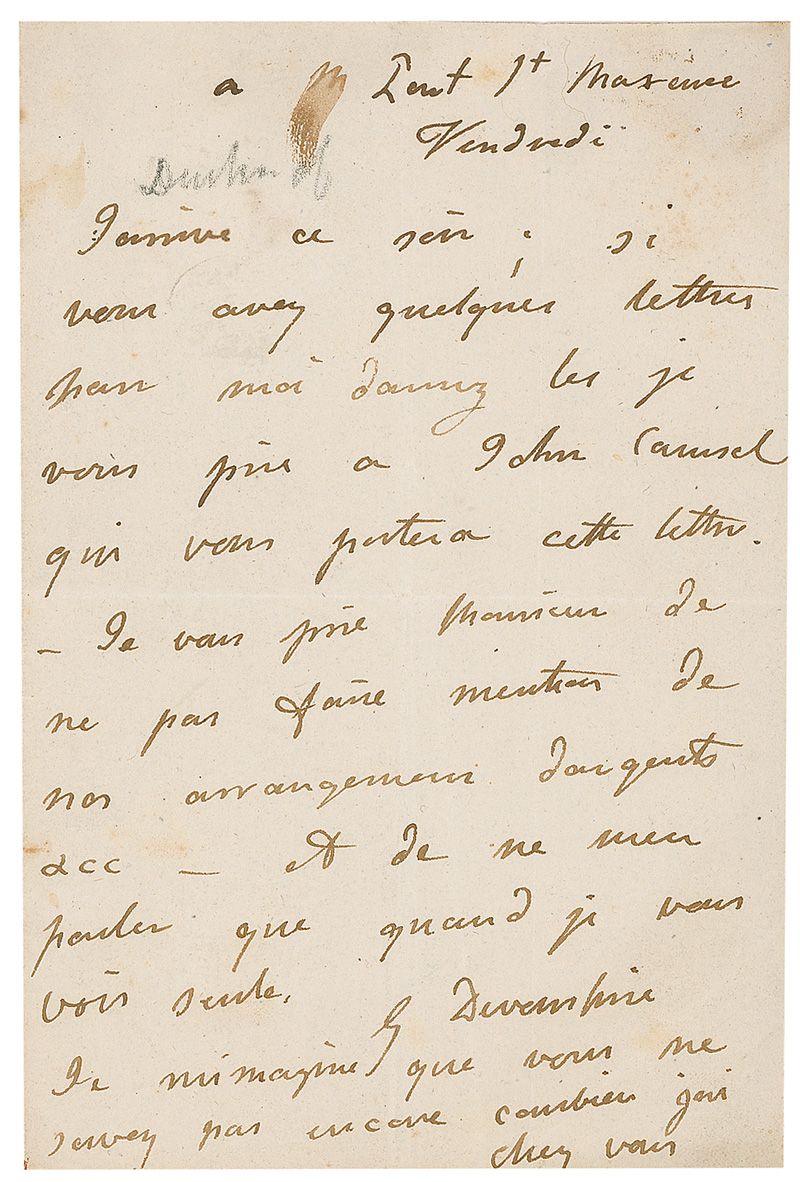 a Pont St Maxence
Vendredi
Duchess of
J'arrive ce soir; si
vous avez quelques lettres
pour moi donnez les je
vous prie a John
qui vous portera cette lettre.
– Je vous prie Monsieur de
ne pas faire mention de
nos arrangemens dargents
&cc – et de ne men
parler que quand je vous
vois seule.
G Devonshire
Je mimagine que vous ne
savez pas encore combien jai
chez vous